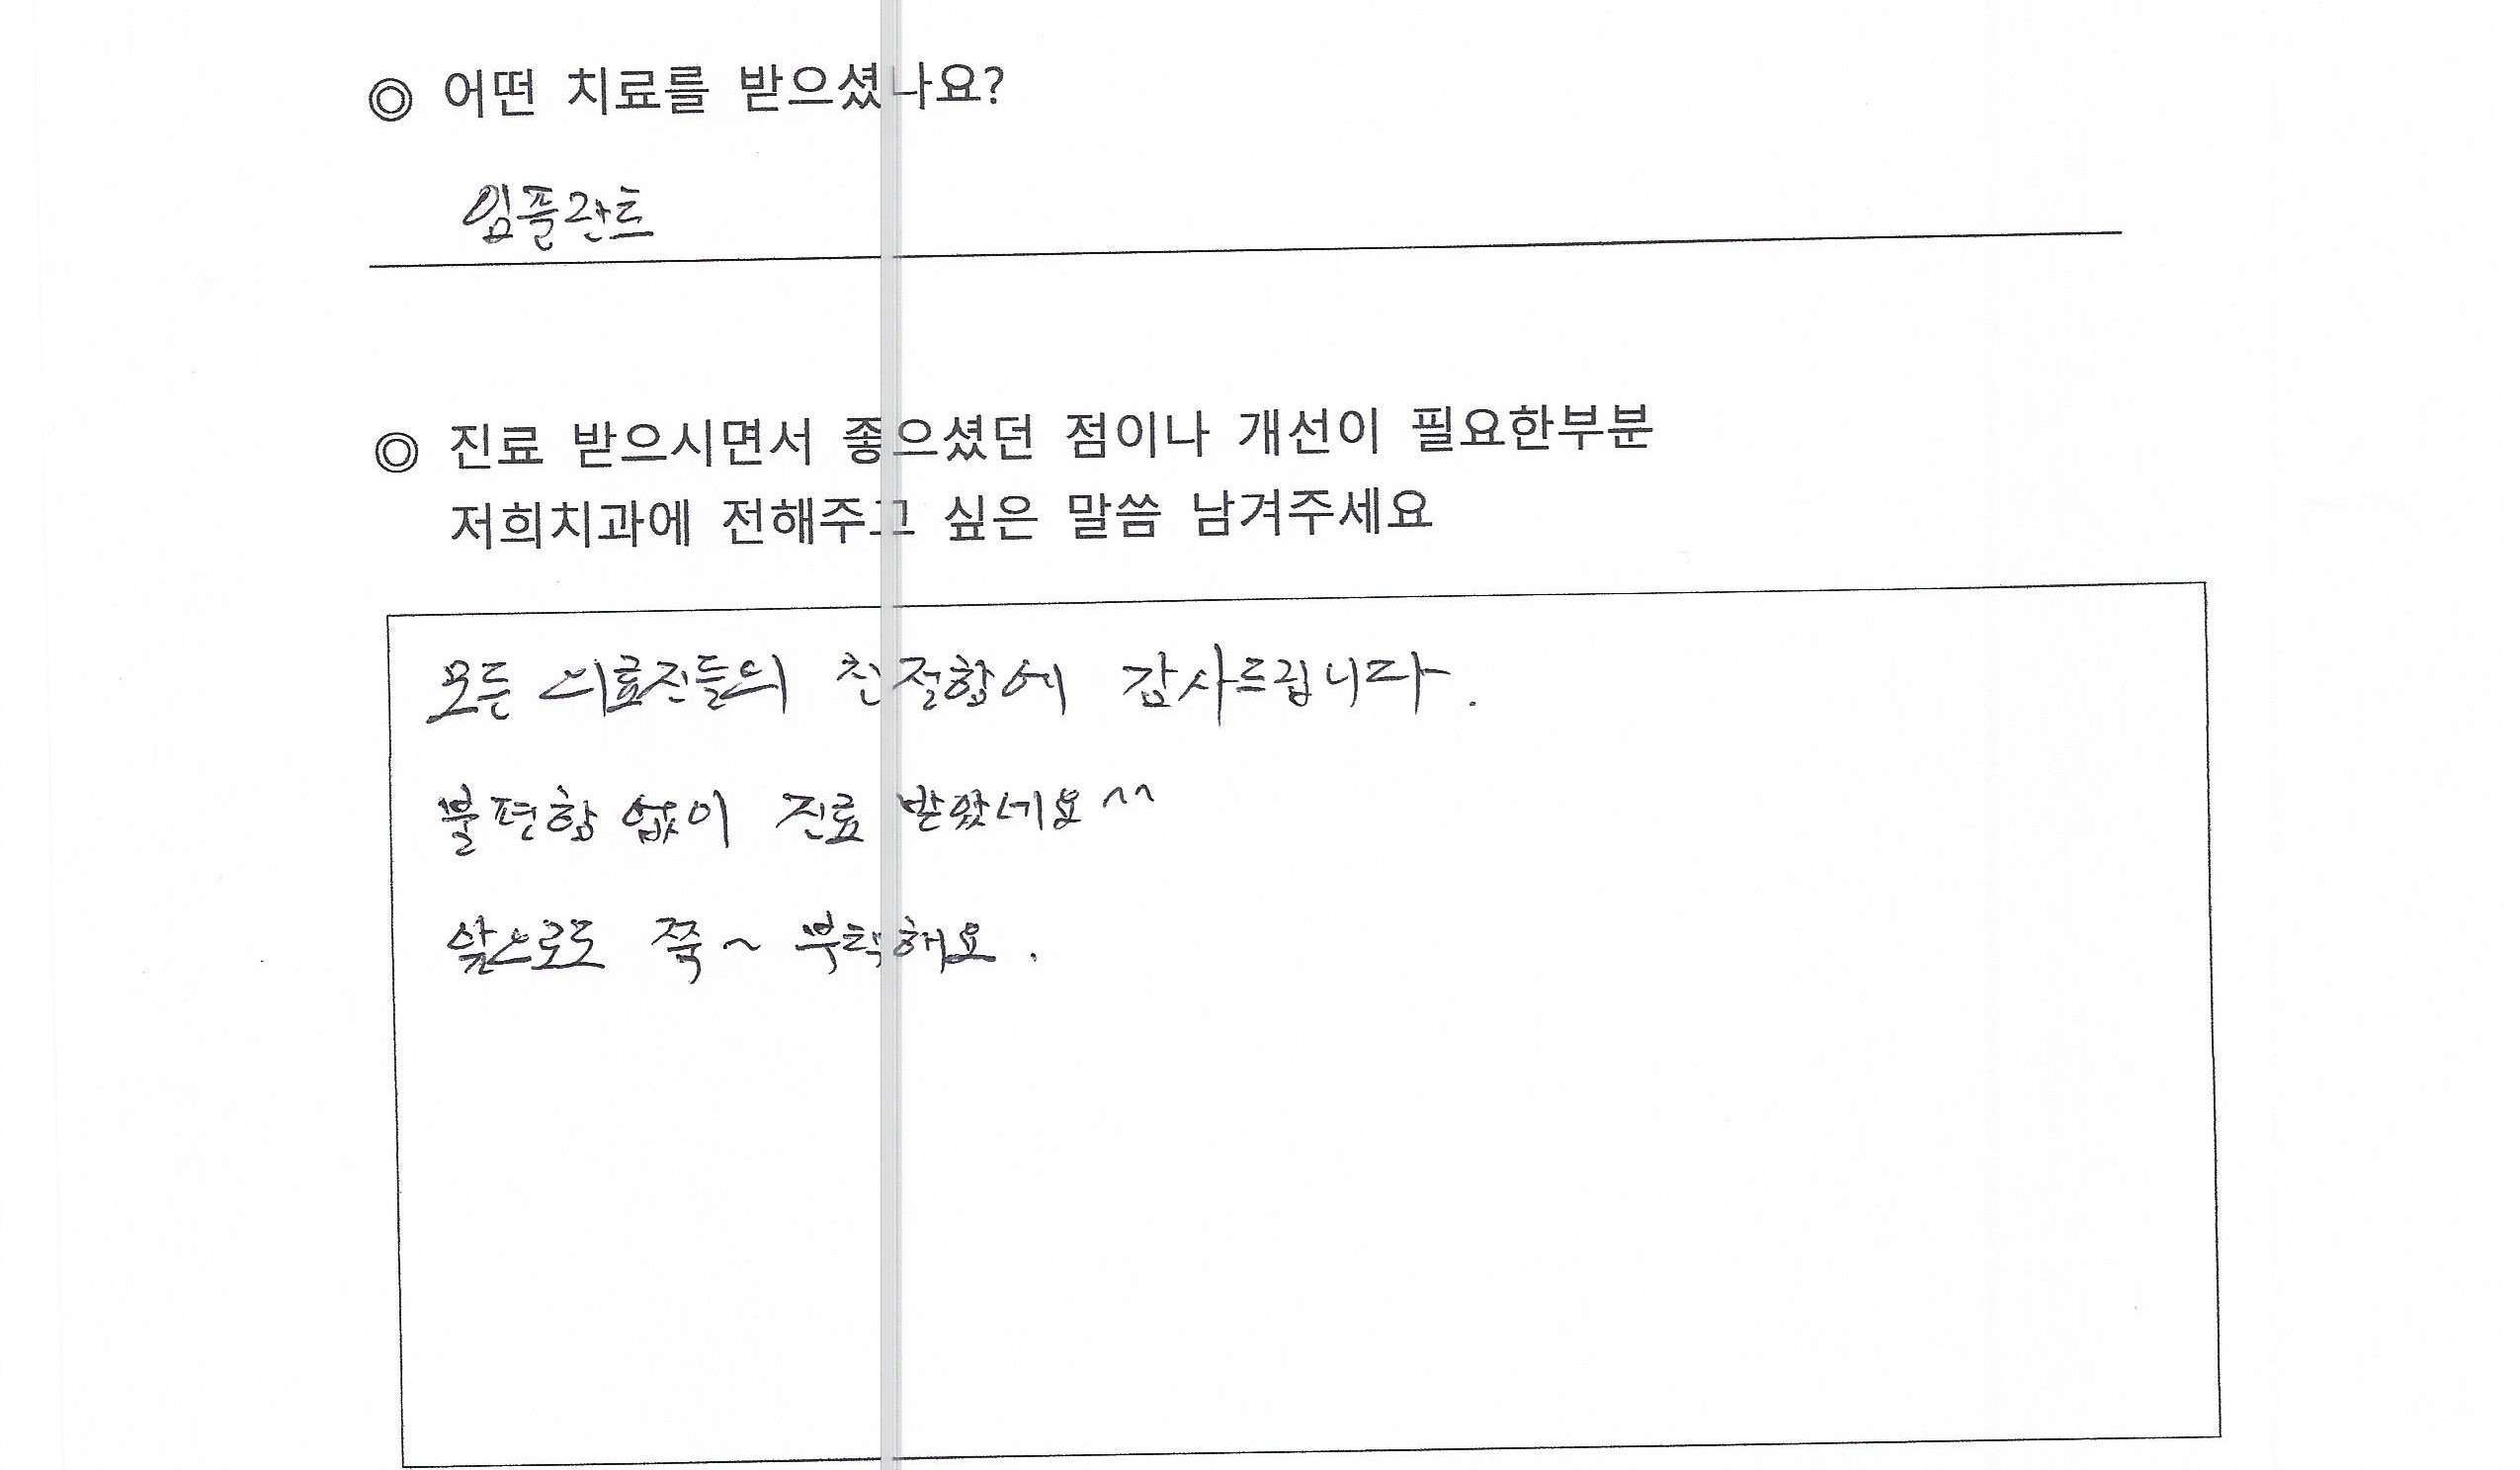 ◎ 어떤 치료를 받으셨나요?
임플란트
◎ 진료 받으시면서 좋으셨던 점이나 개선이 필요한부분
저희치과에 전해주고 싶은 말씀 남겨주세요
모든 의료진들의 친절함에 감사드립니다.
불편함 없이 진료 받았네요^^
앞으로도 쭉~ 부탁해요.